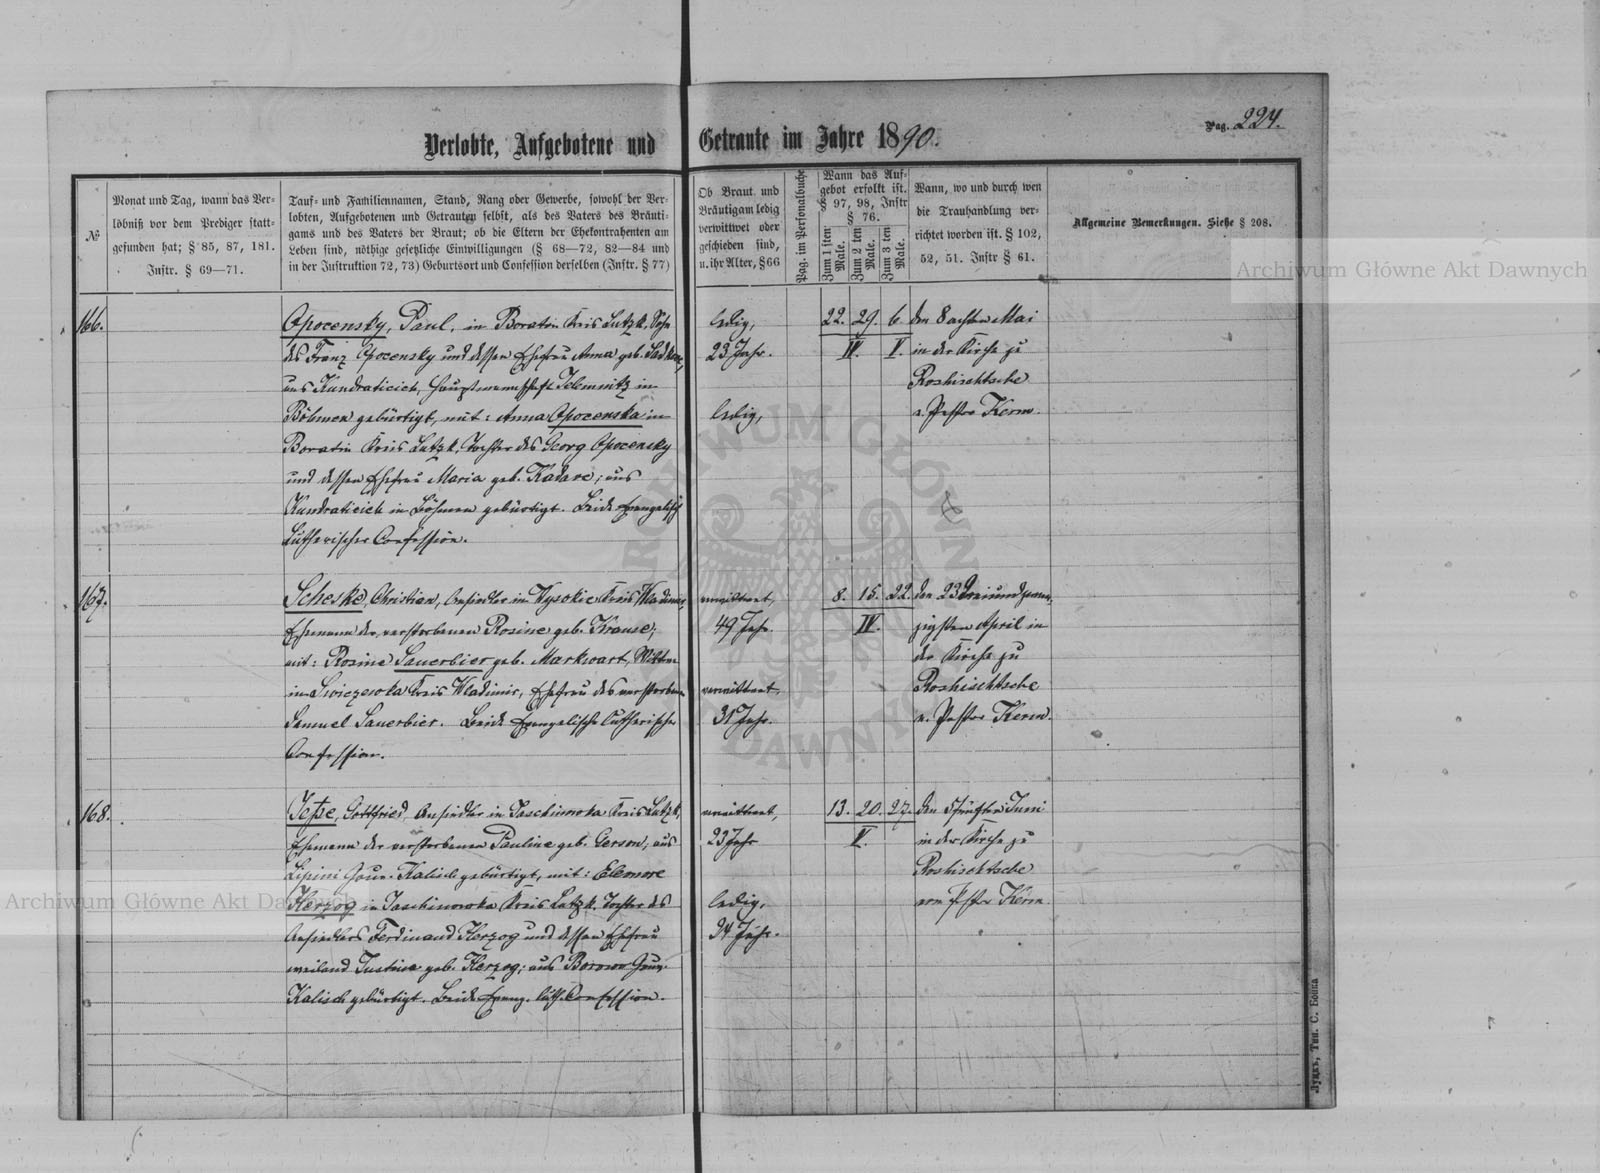 Pag. 224.
Verlobte, Aufgebotene und Getraute im Jahre 1890.
№
Monat und Tag, wann das Ver-
löbniß vor dem Prediger statt-
gefunden hat; § 85, 87, 181.
Instr. § 69—71.
Tauf- und Familiennamen, Stand, Rang oder Gewerbe, sowohl der Ver-
lobten, Aufgebotenen und Getrauten selbst, als des Vaters des Bräuti-
gams und des Vaters der Braut; ob die Eltern der Ehekontrahenten am
Leben sind, nöthige gesetzliche Einwilligungen (§ 68—72, 82—84 und
in der Instruktion 72, 73) Geburtsort und Confession derselben (Instr. § 77)
Ob Braut und
Bräutigam ledig
verwittwet oder
geschieden sind,
u. ihr Alter, § 66
Pag. im Personalbuche
Wann das Auf-
gebot erfolkt ist.
§ 97, 98, Instr
§ 76.
Zum 1 sten Male.
Zum 2 ten Male.
Zum 3 ten Male.
Wann, wo und durch wen
die Trauhandlung ver-
richtet worden ist. § 102,
52, 51. Instr § 61.
Allgemeine Bemerkungen. Siehe § 208.
166.
Opocensky, Paul, in Boratin Kreis Lutzk, Sohn
des Franz Opocensky und dessen Ehefrau Anna geb.
aus Kundraticich, Hauptmannschaft in
Böhmen gebürtigt, mit: Anna Opocenska in
Boratin Kreis Lutzk, Tochter des Georg Opocensky
und dessen Ehefrau Maria geb. ; aus
Kundraticich in Böhmen gebürtigt. Beide Evangelisch
Lutherischer Confession.
ledig,
23 Jahr.
ledig,
22. 29. 6.
IV. V.
den 8 achten Mai
in der Kirche zu
Roshischtsche
v. Pastor Kerm.
167.
Scheske, Christian, Ansiedler in Wysokie Kreis Wladimir,
Ehemann der verstorbenen Rosine geb. Krause;
mit: Rosine Sauerbier geb. Markwart, Wittwe
in Swiczewka Kreis Wladimir, Ehefrau des verstorbenen
Samuel Sauerbier. Beide Evangelische Lutherischer
Confession.
verwittwet,
49 Jahr.
verwittwet,
31 Jahr.
8. 15. 22.
IV.
den 23 Dreiundzwan-
zigsten April in
der Kirche zu
Roshischtsche
v. Pastor Kerm.
168.
Jeske, Gottfried, Ansiedler in Jaschinowka Kreis Lutzk,
Ehemann der verstorbenen Pauline geb. Gerson, aus
Lipini Gouv. Kalisch gebürtigt, mit: Eleonore
Herzog in Jaschinowka Kreis Lutzk. Tochter des
Ansiedlers Ferdinand Herzog und dessen Ehefrau
weiland Justine geb. Herzog; aus Gouv.
Kalisch gebürtigt. Beide Evang. luth. Confession.
verwittwet,
23 Jahr
ledig,
24 Jahr.
13. 20. 27.
V.
den 5 fünften Juni
in der Kirche zu
Roshischtsche
vom Pastor Kerm
Луцкъ, Тип. С. Бонка
Archiwum Główne Akt Dawnych
Archiwum Główne Akt Dawnych
ARCHIWUM GŁÓWNE AKT DAWNYCH